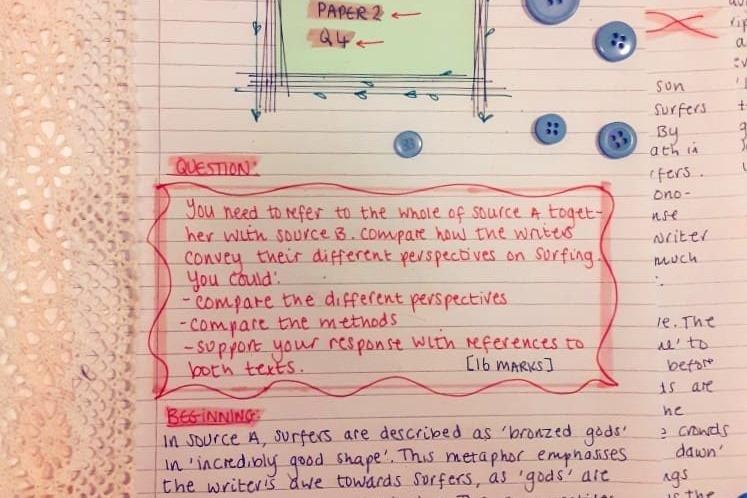 PAPER 2
Q4
QUESTION:
You need to refer to the whole of source A toget-
her with source B. Compare how the writers
convey their different perspectives on surfing.
You could:
- compare the different perspectives
- compare the methods
- support your response with references to
both texts. [16 MARKS]
BEGINNING:
In source A, surfers are described as 'bronzed gods'
in 'incredibly good shape'. This metaphor emphasises
the writer's awe towards surfers, as 'gods' are
son
surfers
By
ono-
nse
writer
much
The
to
before
is are
he
crowds
dawn'
ngs
is the